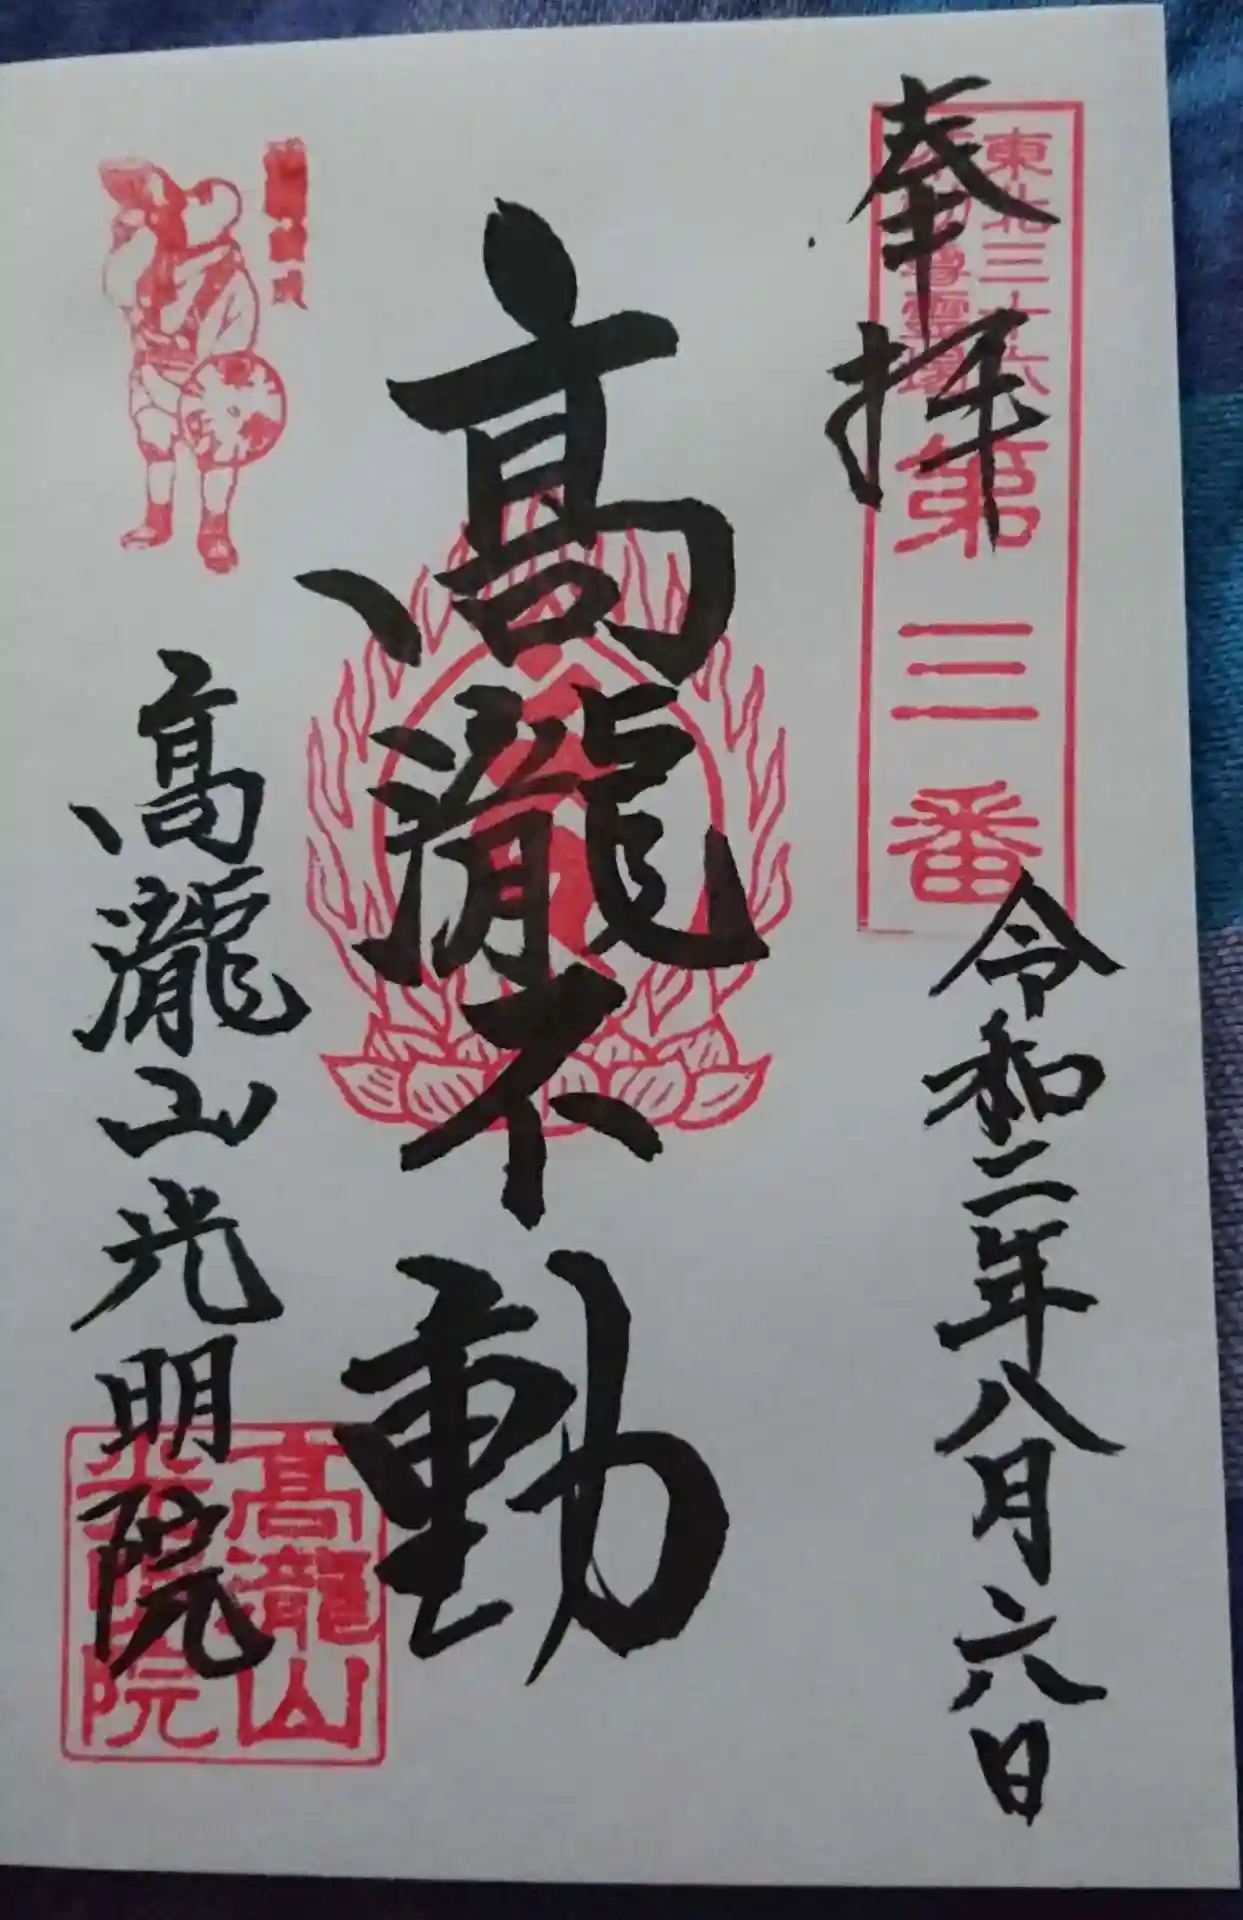 奉拝
東北三十六
不動尊霊場
第三番
令和二年八月六日
高瀧不動
高瀧山光明院
高瀧山
光明院